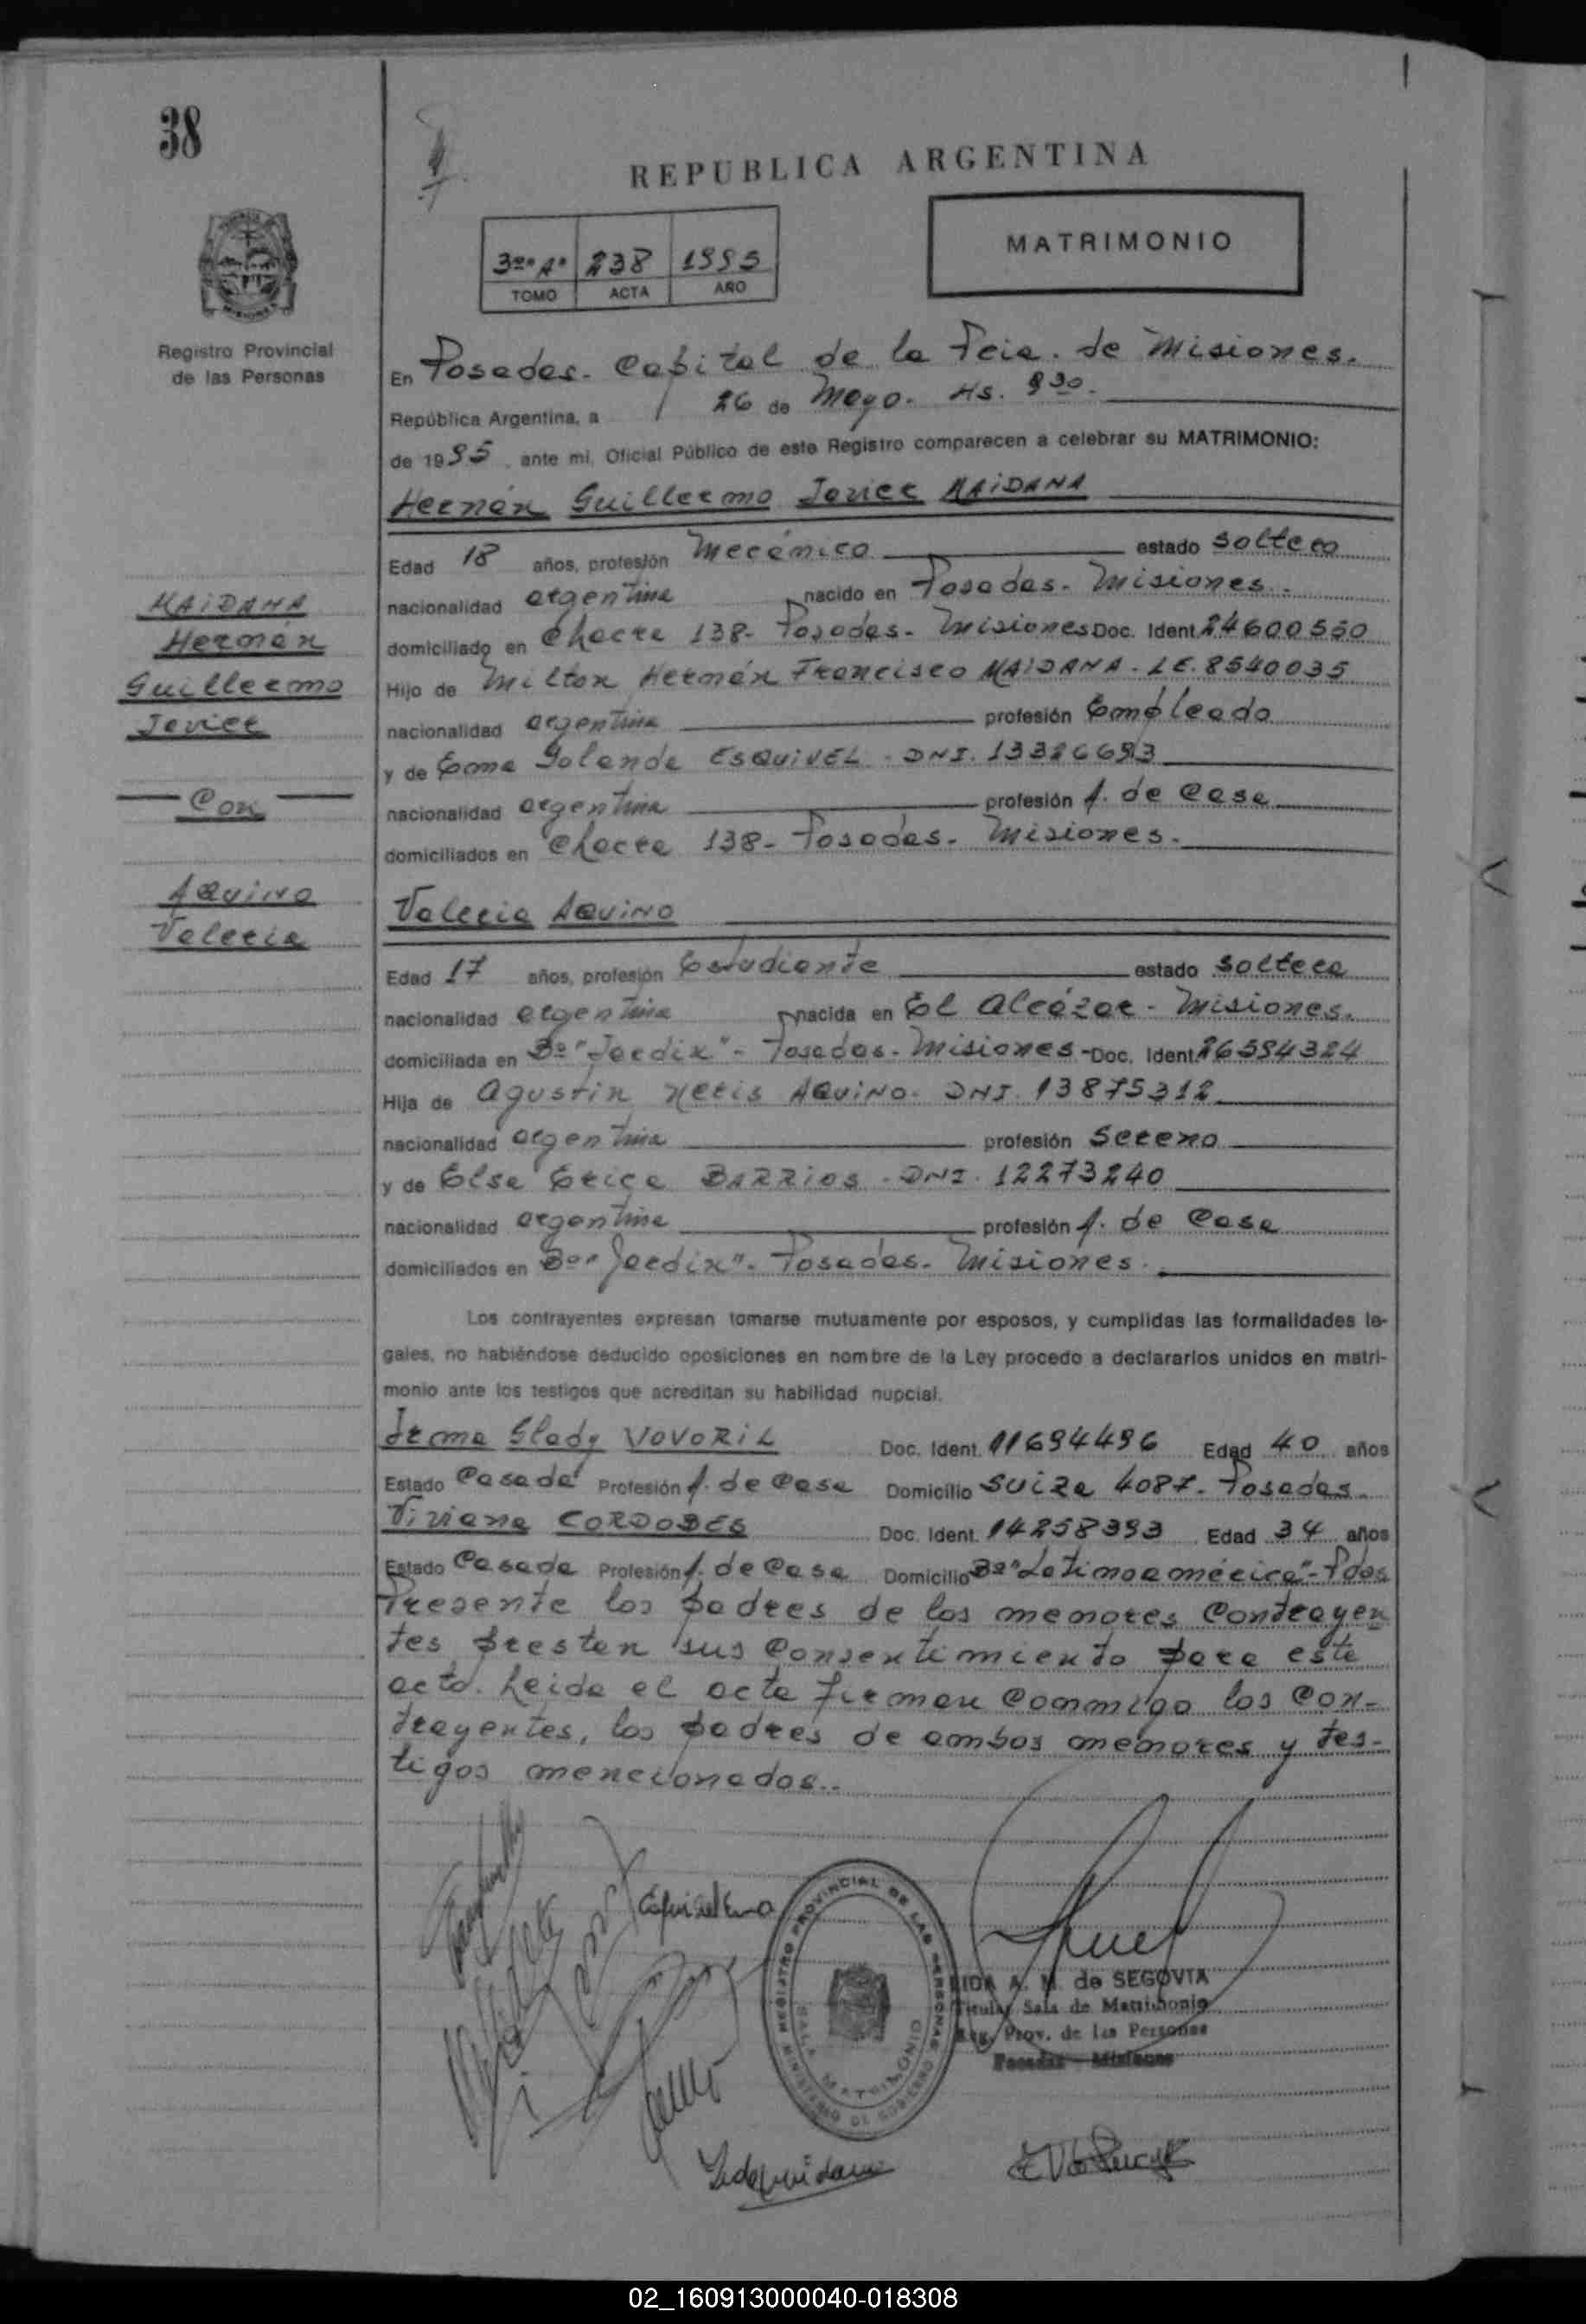 38
REPUBLICA ARGENTINA
MATRIMONIO
3º A° 238 1995
TOMO ACTA AÑO
Registro Provincial
de las Personas
En Posadas. Capital de la Pcia. de Misiones.
República Argentina, a 26 de Mayo. Hs. 9 30.
de 1995, ante mi, Oficial Público de este Registro comparecen a celebrar su MATRIMONIO:
Hernán Guillermo Javier MAIDANA
Edad 18 años, profesión Mecánico estado soltero
nacionalidad argentina nacido en Posadas. Misiones.
domiciliado en Chacra 138- Posadas. Misiones Doc. Ident. 24600550
Hijo de Milton Hernán Francisco MAIDANA. LE. 8540035
nacionalidad argentina profesión Empleado
y de Ema Yolanda ESQUIVEL - DNI. 13326693
nacionalidad argentina profesión A. de Casa
domiciliados en Chacra 138- Posadas. Misiones.
MAIDANA
Hernán
Guillermo
Javier
Con
AQUINO
Valeria
Valeria AQUINO
Edad 17 años, profesión Estudiante estado soltera
nacionalidad argentina nacida en El Alcázar - Misiones.
domiciliada en Bº "Jardín" - Posadas. Misiones - Doc. Ident. 26594324
Hija de Agustín Neris AQUINO. DNI. 13875312
nacionalidad argentina profesión Sereno
y de Elsa Erica BARRIOS - DNI. 12273240
nacionalidad argentina profesión A. de Casa
domiciliados en Bº "Jardín". Posadas. Misiones.
Los contrayentes expresan tomarse mutuamente por esposos, y cumplidas las formalidades le-
gales, no habiéndose deducido oposiciones en nombre de la Ley procedo a declararlos unidos en matri-
monio ante los testigos que acreditan su habilidad nupcial.
Irma Glady VOVORIL Doc. Ident. 11694496 Edad 40 años
Estado Casada Profesión A. de Casa Domicilio Suiza 4087. Posadas.
Viviana CORDOBES Doc. Ident. 14258393 Edad 34 años
Estado Casada Profesión A. de Casa Domicilio Bº "Latinoamérica" - Pdas
Presente los padres de los menores Contrayen
tes prestan sus Consentimiento para este
acto. Leida el acta firman Conmigo los Con-
trayentes, los padres de ambos menores y tes-
tigos mencionados..
Esquivel Ema
REGISTRO PROVINCIAL DE LAS PERSONAS
SALA MATRIMONIO
MINISTERIO DE GOBIERNO
A. M. de SEGOVIA
Titular Sala de Matrimonio
Reg. Prov. de las Personas
Posadas - Misiones
02_160913000040-018308